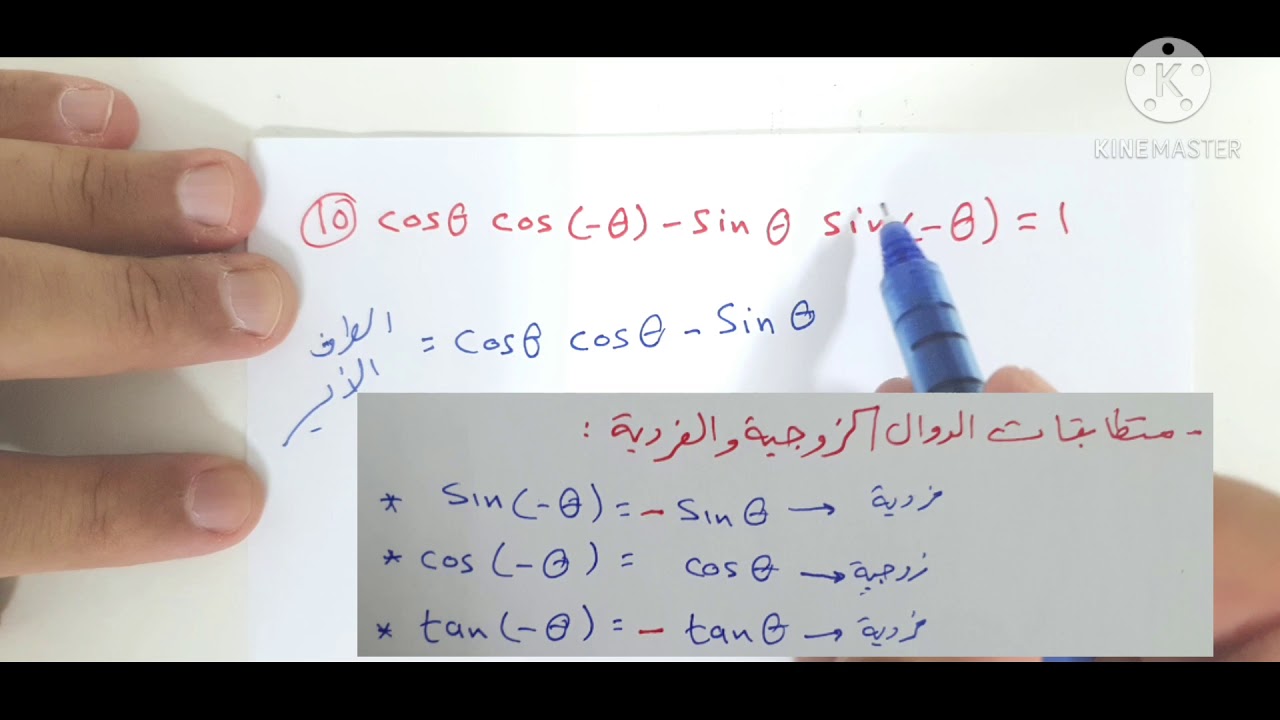 KINEMASTER
⑩ cosθ cos(-θ) - sin θ sin(-θ) = 1
الطرف الأيسر = cosθ cosθ - Sin θ
- متطابقات الدوال الزوجية والفردية :
* Sin(-θ) = - Sinθ → فردية
* cos(-θ) = cosθ → زوجية
* tan(-θ) = - tanθ → فردية